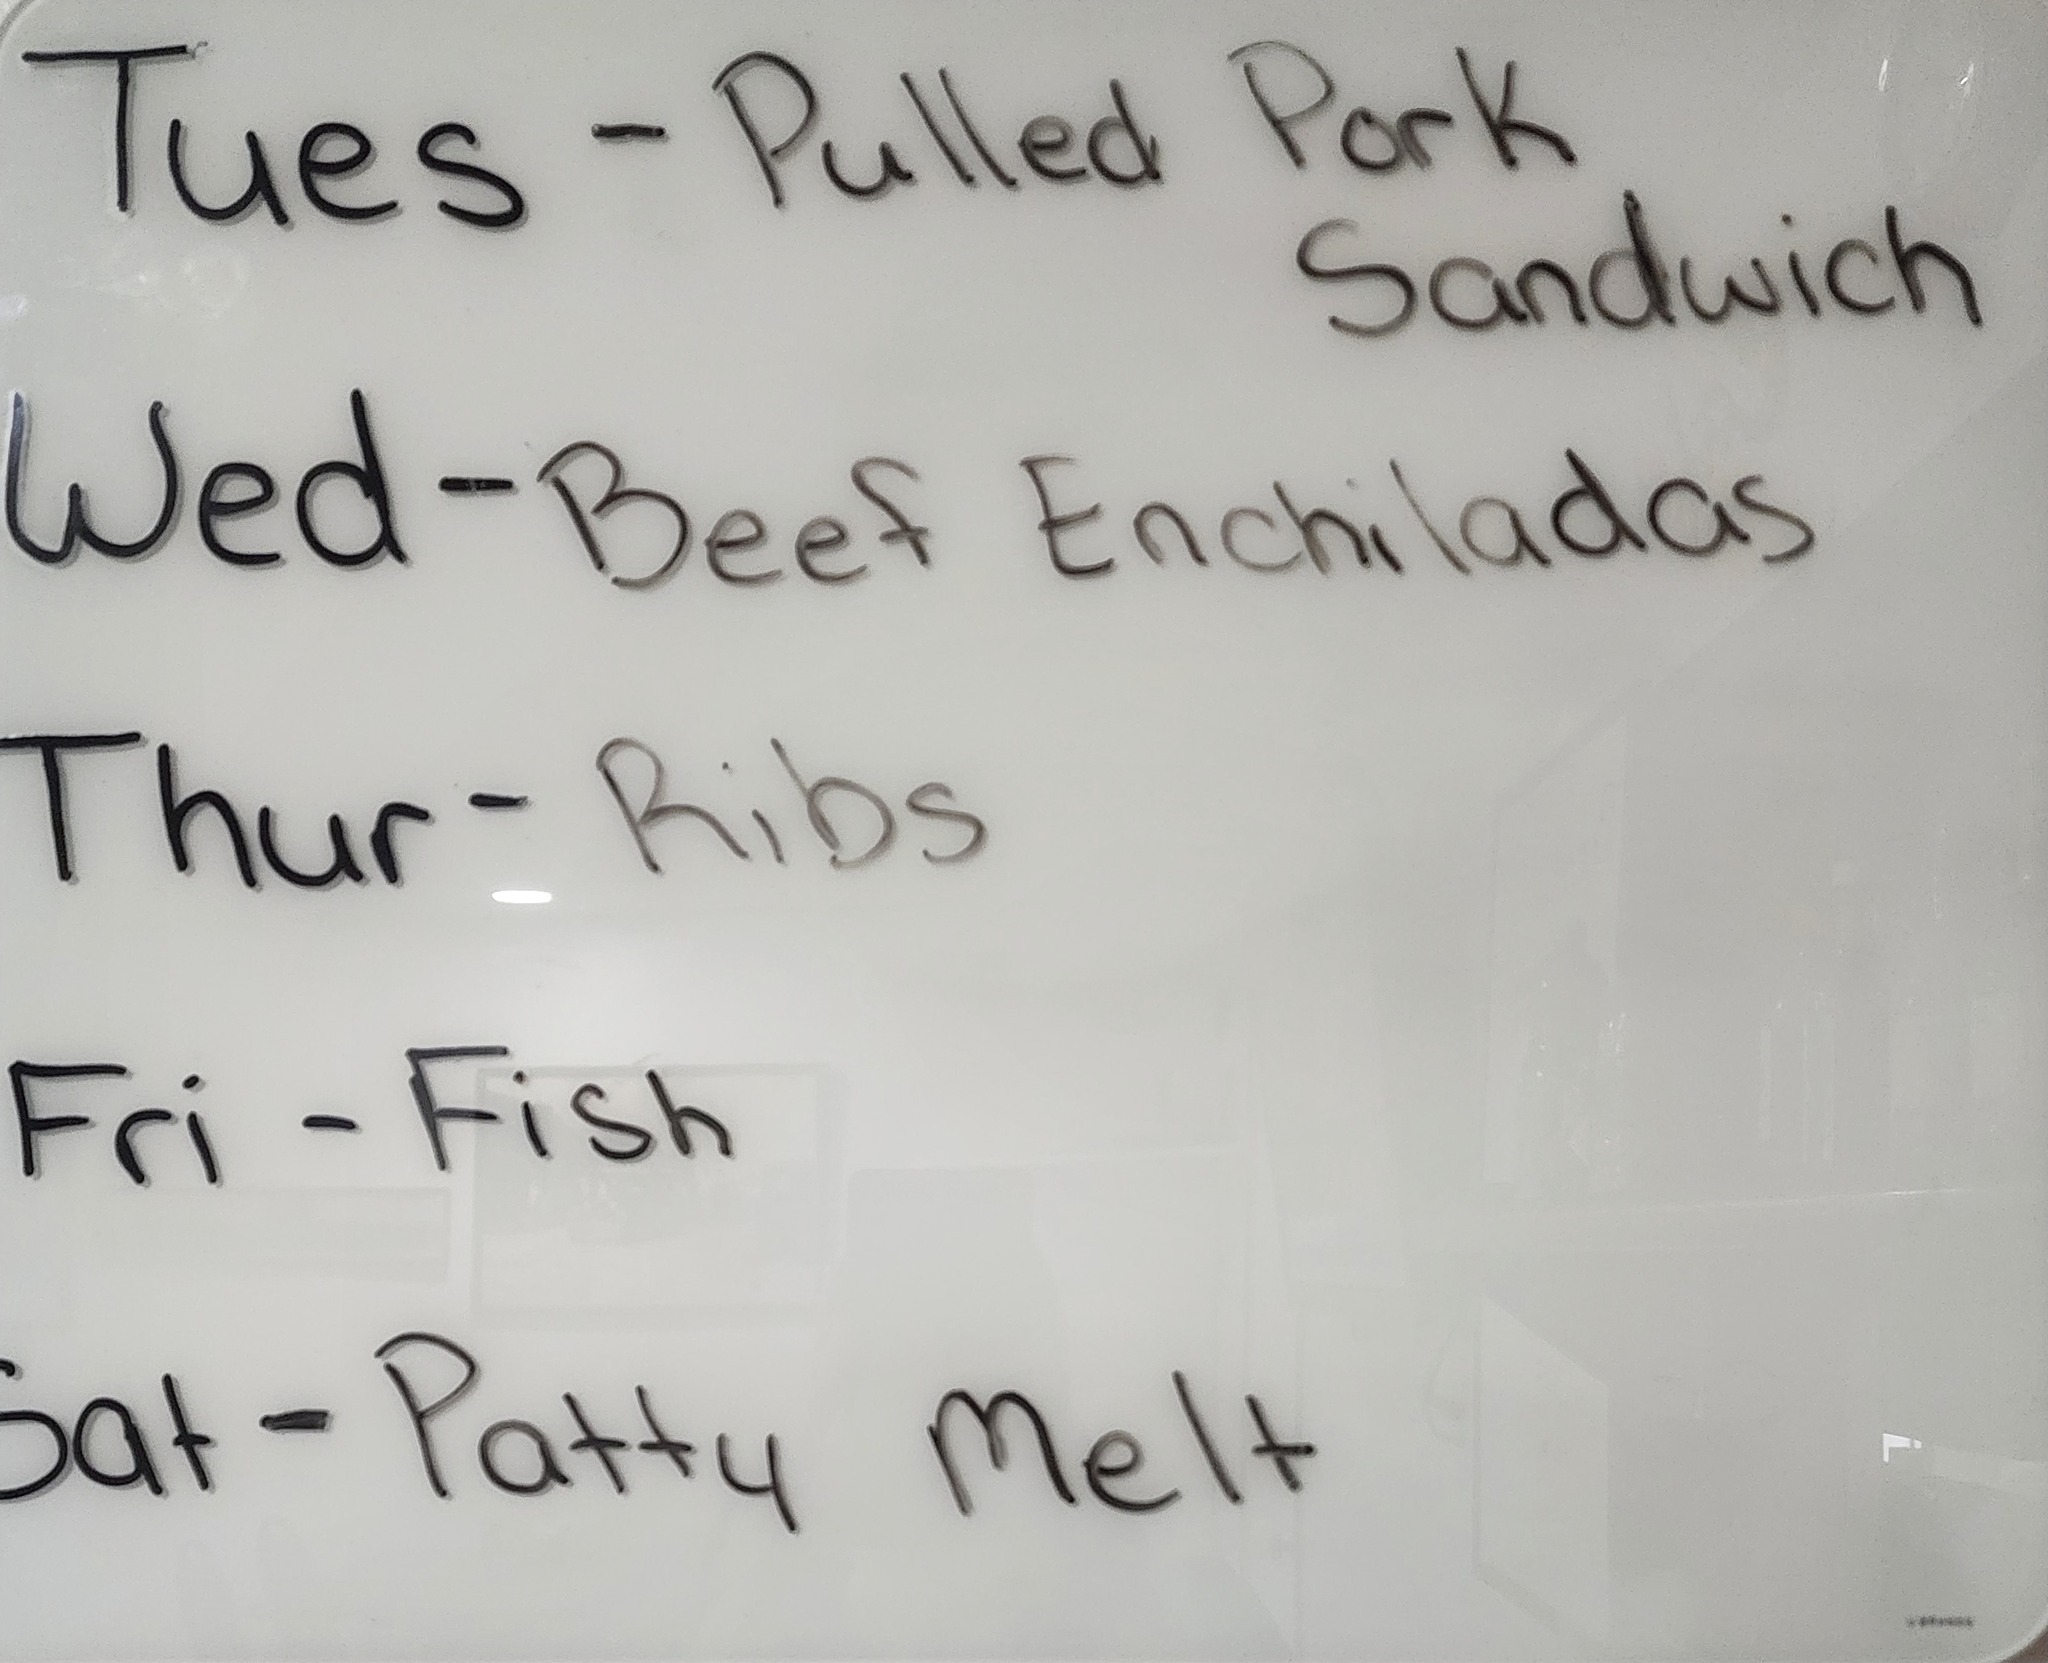 Tues - Pulled Pork
Sandwich
Wed - Beef Enchiladas
Thur - Ribs
Fri - Fish
Sat - Patty Melt